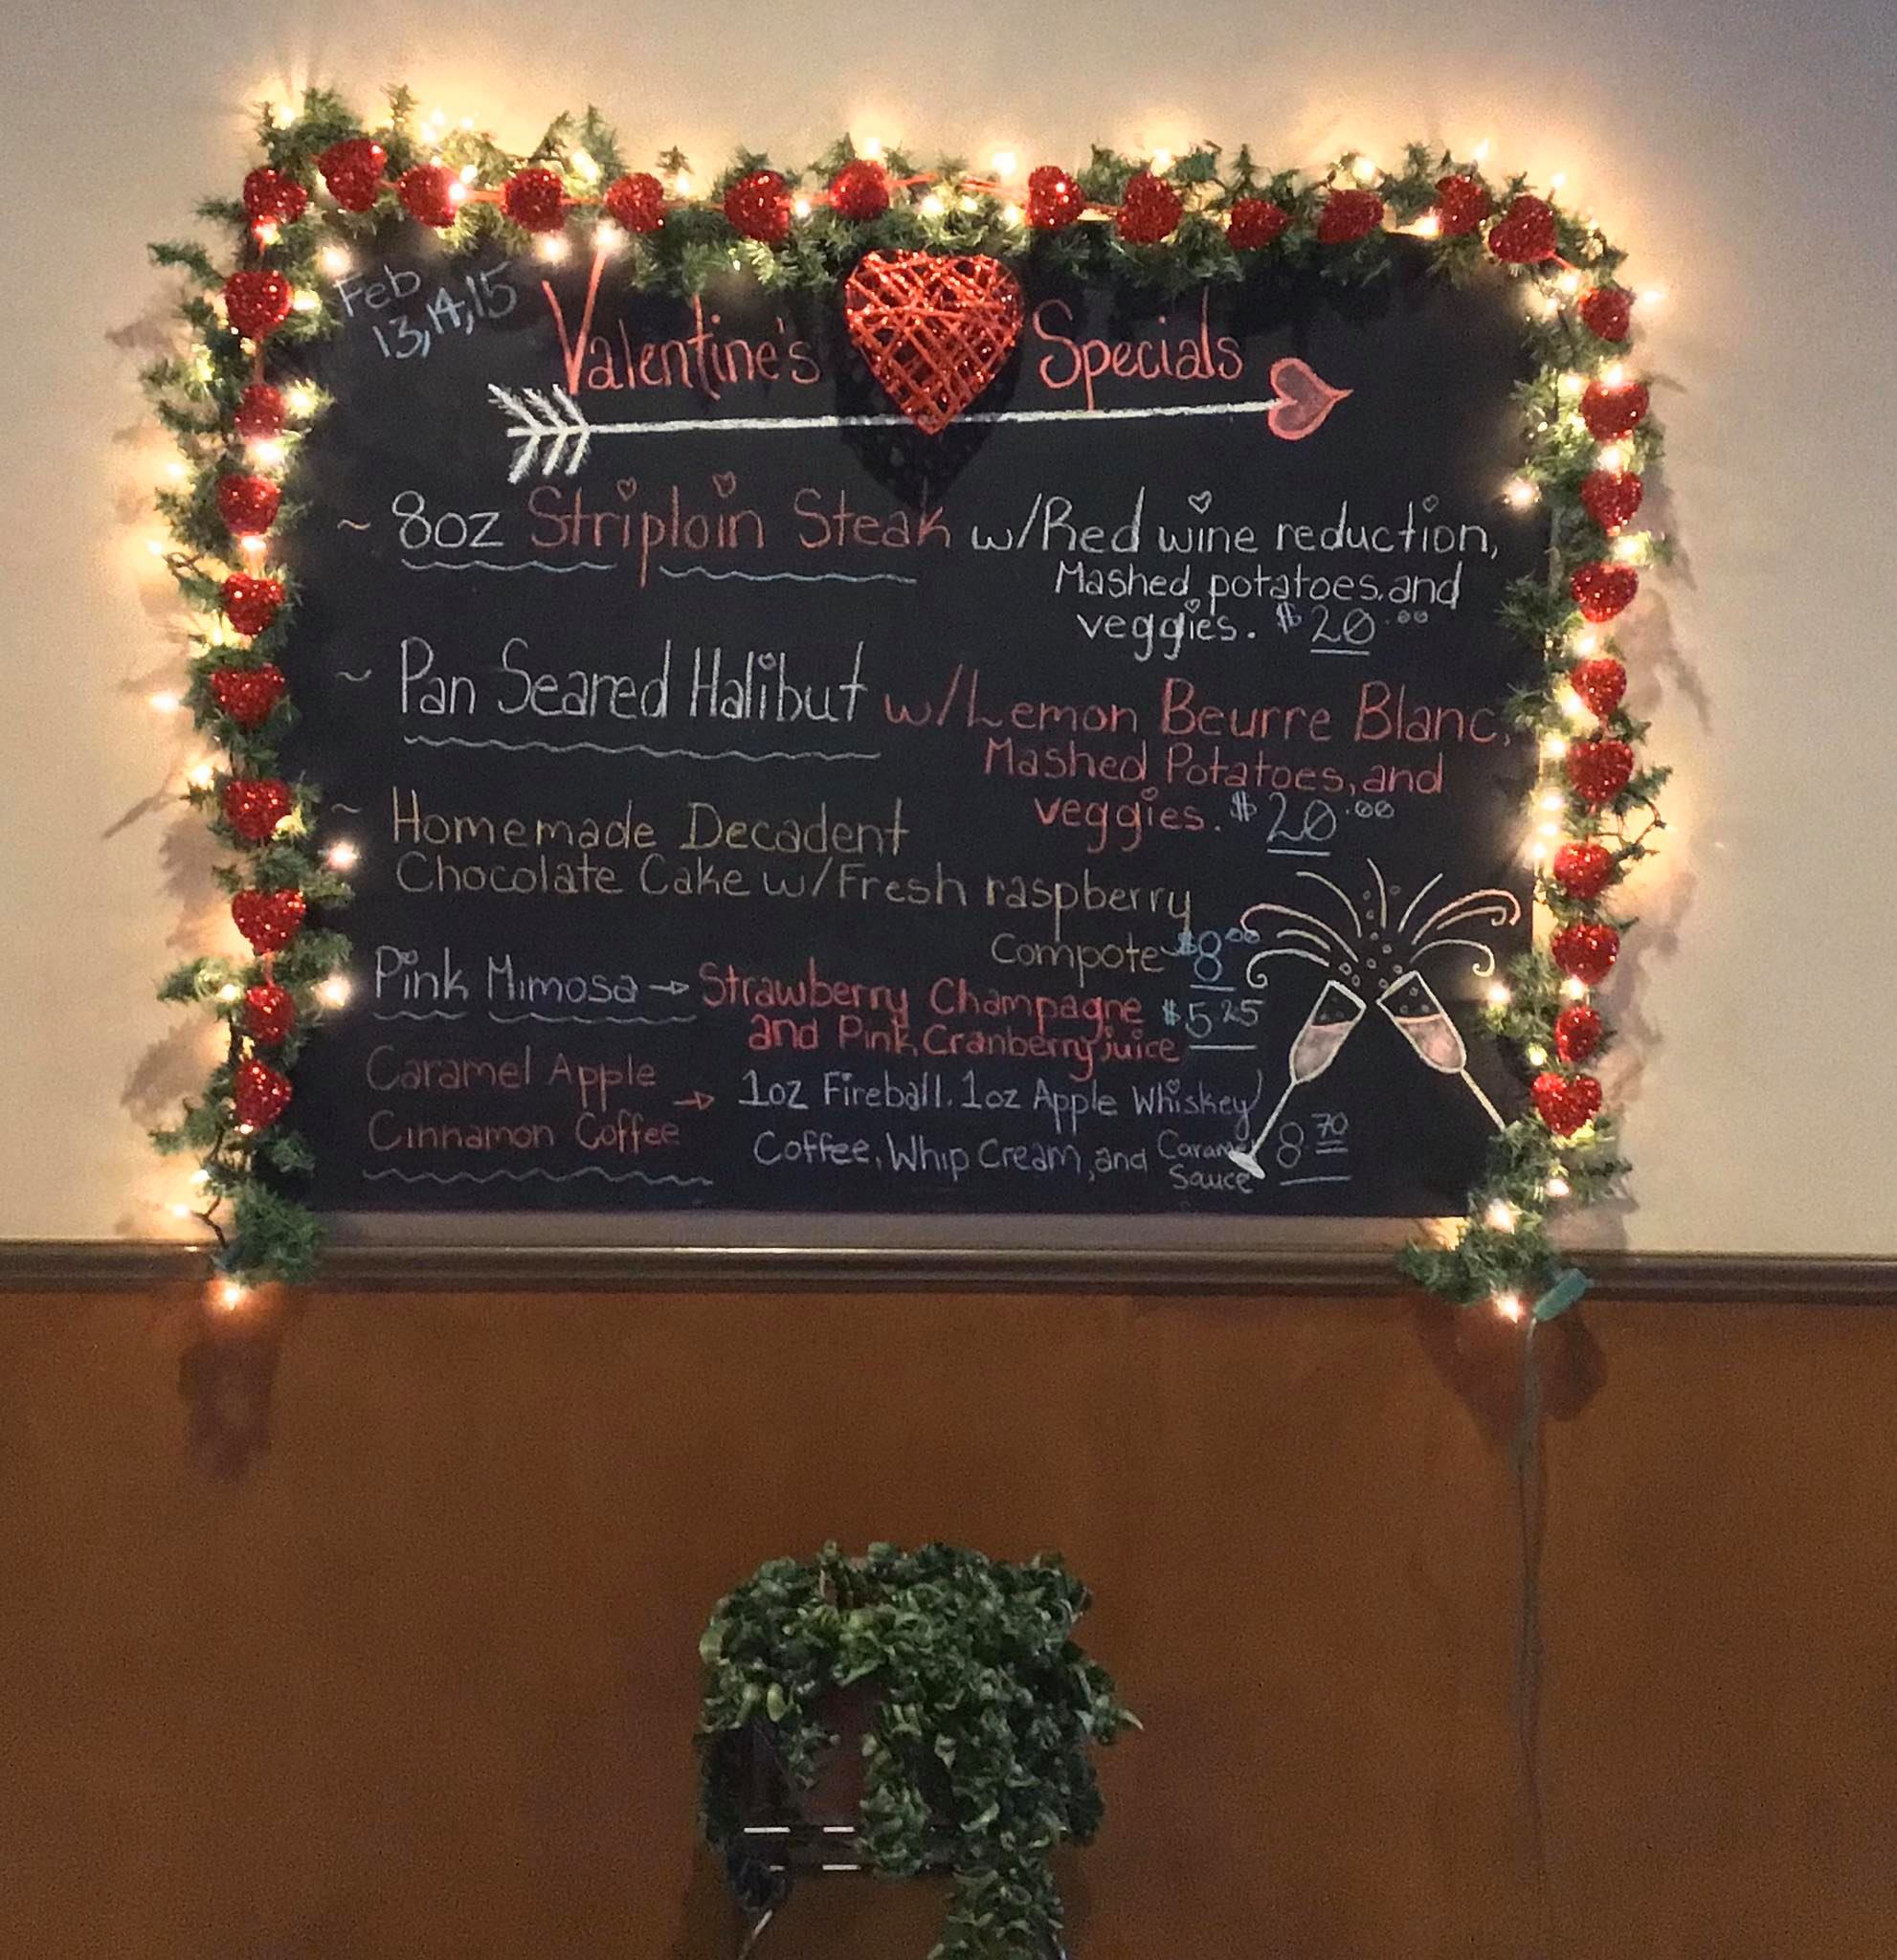 Feb
13,14,15
Valentine's Specials
~ 8oz Striploin Steak w/Red wine reduction,
Mashed potatoes, and
veggies. $20.00
~ Pan Seared Halibut w/Lemon Beurre Blanc,
Mashed Potatoes, and
veggies. $20.00
~ Homemade Decadent
Chocolate Cake w/Fresh raspberry
Compote $8.00
Pink Mimosa → Strawberry Champagne $5.25
and Pink Cranberry juice
Caramel Apple
Cinnamon Coffee → 1oz Fireball, 1oz Apple Whiskey
Coffee, Whip Cream, and Caramel
Sauce 8 70